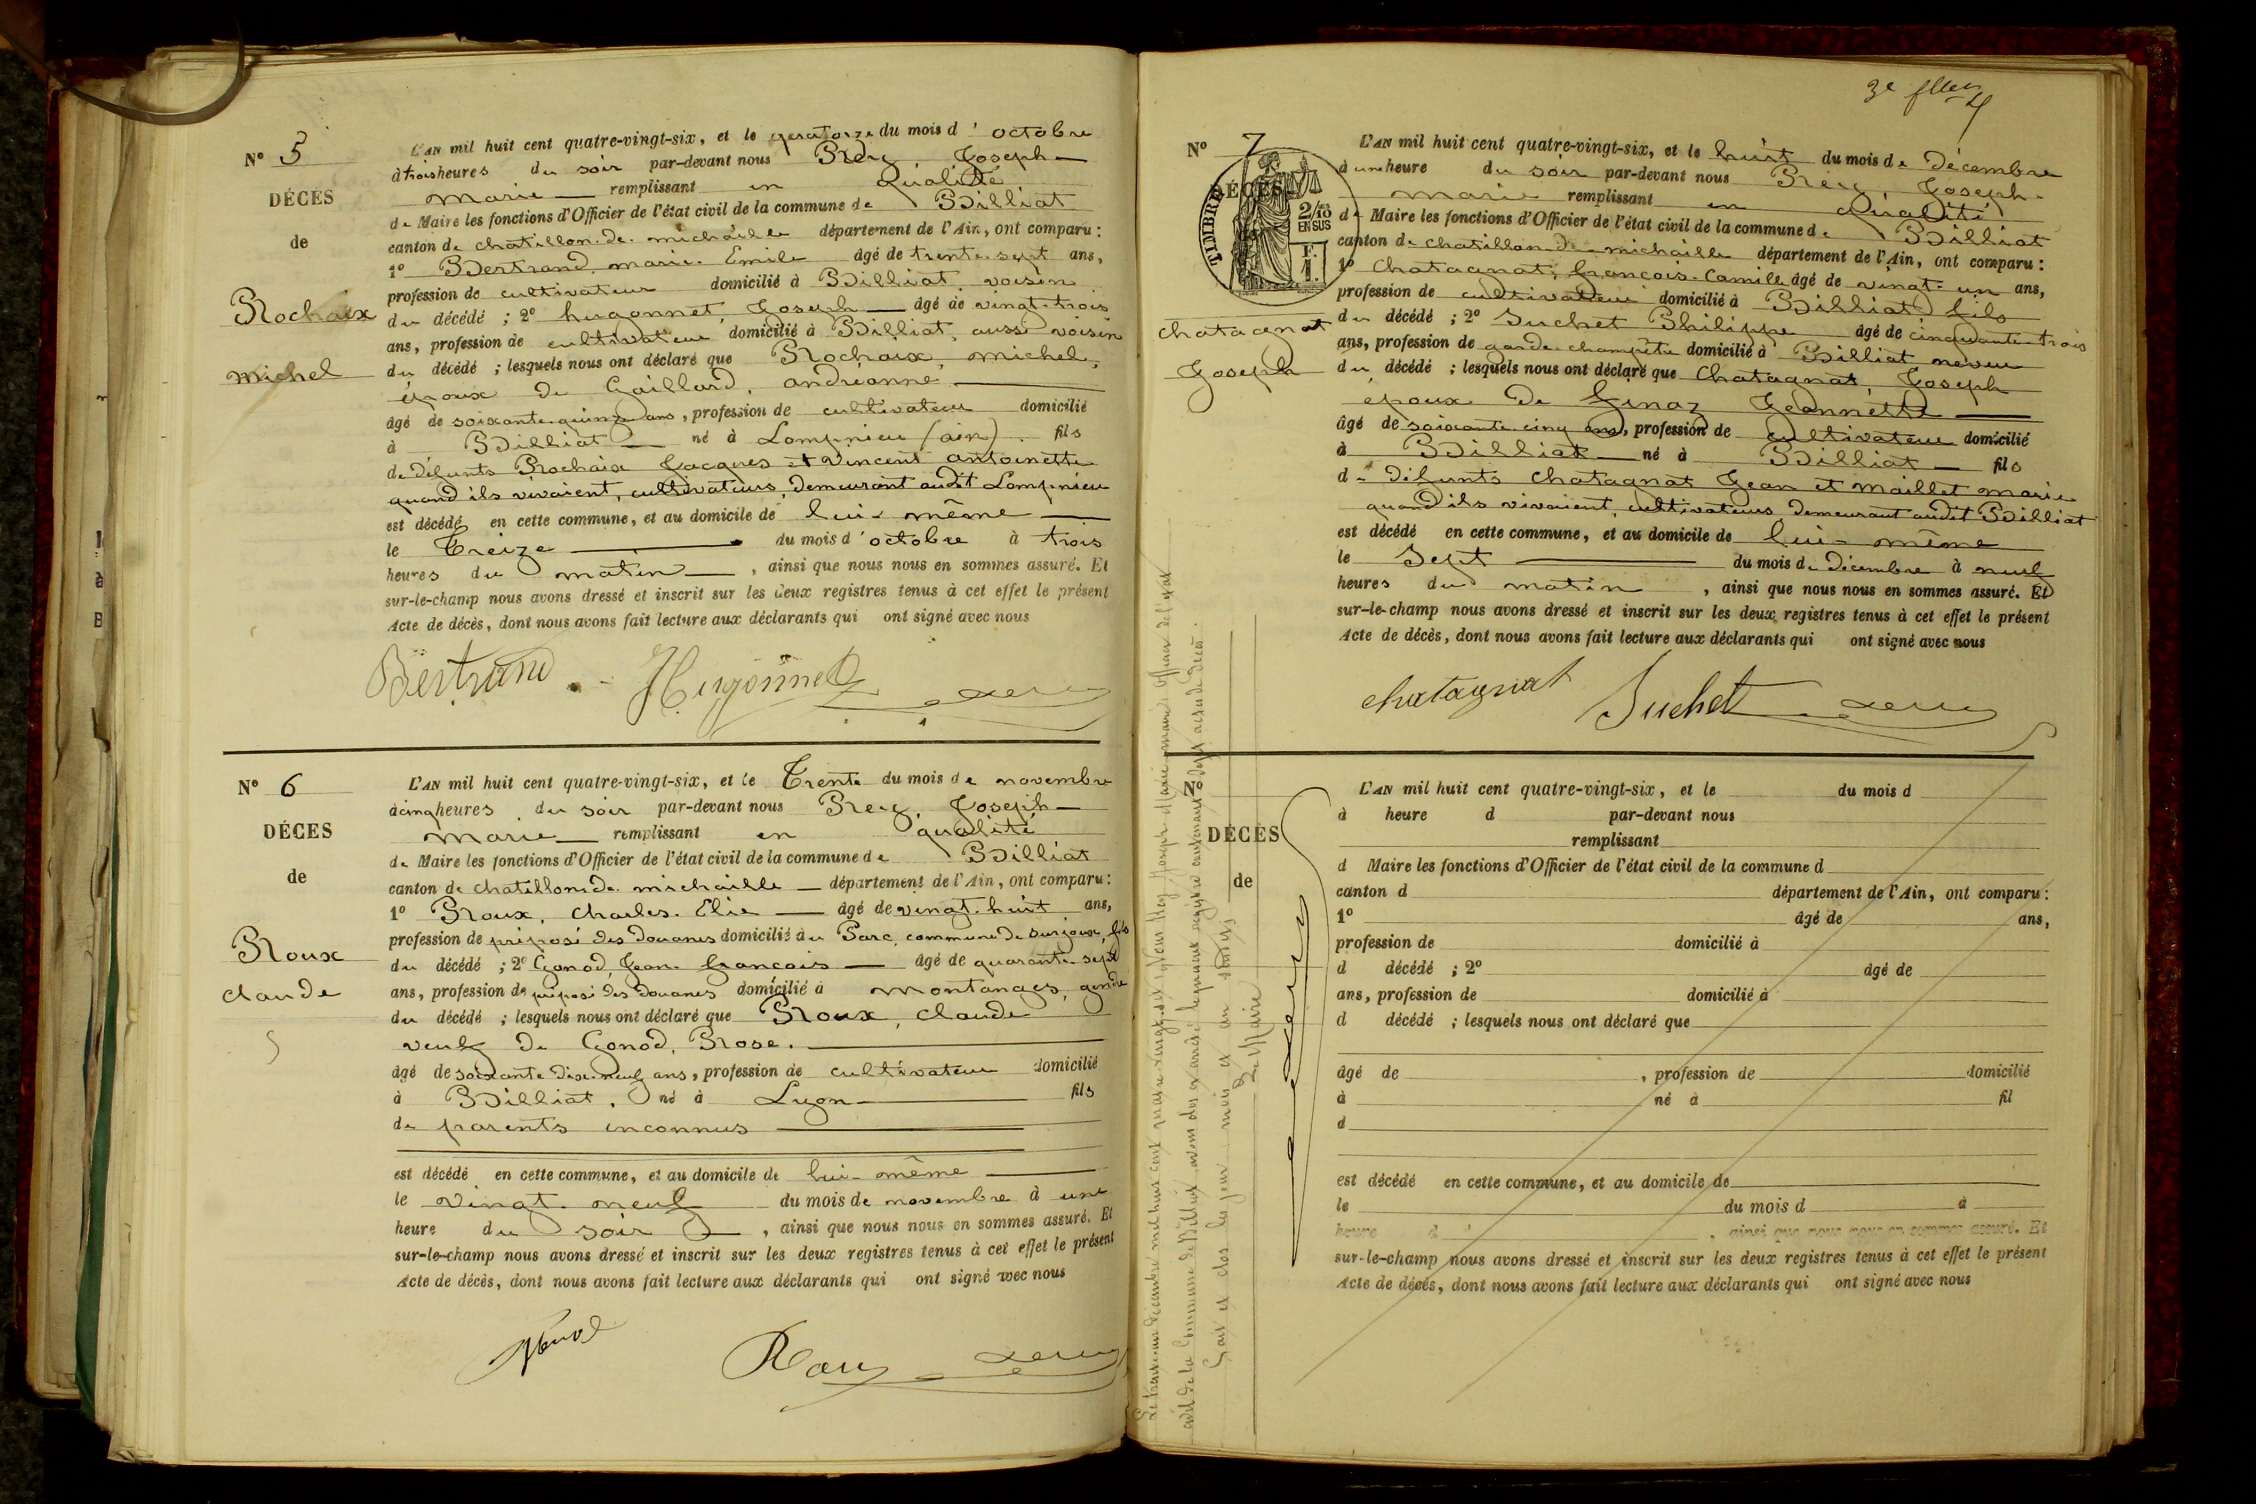 N° 5
DÉCÈS
de
Rochaix
Michel
L'AN mil huit cent quatre-vingt-six, et le quatorze du mois d'octobre
à trois heures du soir par-devant nous Rey, Joseph
Marie remplissant en qualité
de Maire les fonctions d'Officier de l'état civil de la commune de Billiat
canton de Chatillon de michaille département de l'Ain, ont comparu :
1° Bertrand, marie Emile âgé de trente sept ans,
profession de cultivateur domicilié à Billiat, voisin
du décédé ; 2° hugonnet, Joseph âgé de vingt-trois
ans, profession de cultivateur domicilié à Billiat, aussi voisin
du décédé ; lesquels nous ont déclaré que Rochaix, michel,
époux de Gaillard, andréanne
âgé de soixante quinze ans, profession de cultivateur domicilié
à Billiat né à Lompnieu (ain) fils
de défunts Rochaix Jacques et Vincent antoinette
quand ils vivaient, cultivateurs, demeurant audit Lompnieu
est décédé en cette commune, et au domicile de lui-même
le Treize du mois d'octobre à trois
heures du matin, ainsi que nous nous en sommes assuré. Et
sur-le-champ nous avons dressé et inscrit sur les deux registres tenus à cet effet le présent
Acte de décès, dont nous avons fait lecture aux déclarants qui ont signé avec nous
Bertrand Hugonnet
N° 6
DÉCES
de
Roux
claude
L'AN mil huit cent quatre-vingt-six, et le Trente du mois de novembre
à cinq heures du soir par-devant nous Rey, Joseph
Marie remplissant en qualité
de Maire les fonctions d'Officier de l'état civil de la commune de Billiat
canton de chatillon de michaille département de l'Ain, ont comparu :
1° Roux, Charles Elie âgé de vingt-huit ans,
profession de préposé des Douanes domicilié au Parc, commune de Surjoux, fils
du décédé ; 2° Gonod, Jean françois âgé de quarante-sept
ans, profession de préposé des Douanes domicilié à Montanges, gendre
du décédé ; lesquels nous ont déclaré que Roux, claude
veuf de Gonod, Rose.
âgé de soixante Dix-neuf ans, profession de cultivateur domicilié
à Billiat, né à Lyon fils
de parents inconnus
est décédé en cette commune, et au domicile de lui-même
le vingt-neuf du mois de novembre à une
heure du soir, ainsi que nous nous en sommes assuré. Et
sur-le-champ nous avons dressé et inscrit sur les deux registres tenus à cet effet le présent
Acte de décès, dont nous avons fait lecture aux déclarants qui ont signé avec nous
Roux
3e
N° 7
DÉCÈS
TIMBRE
2/10
EN SUS
F.
1.
chatagnat
Joseph
L'AN mil huit cent quatre-vingt-six, et le huit du mois de Décembre
à une heure du soir par-devant nous Rey, Joseph
Marie remplissant en qualité
de Maire les fonctions d'Officier de l'état civil de la commune de Billiat
canton de chatillon de michaille département de l'Ain, ont comparu :
1° Chatagnat, françois-Camille âgé de vingt-un ans,
profession de cultivateur domicilié à Billiat fils
du décédé ; 2° Suchet Philippe âgé de cinquante-trois
ans, profession de garde champêtre domicilié à Billiat neveu
du décédé ; lesquels nous ont déclaré que Chatagnat, Joseph
époux de Ginaz Jeannette
âgé de soixante-cinq ans, profession de cultivateur domicilié
à Billiat né à Billiat fils
de Défunts Chatagnat Jean et Maillet marie
quand ils vivaient, cultivateurs demeurant audit Billiat
est décédé en cette commune, et au domicile de lui-même
le Sept du mois de Décembre à neuf
heures du matin, ainsi que nous nous en sommes assuré. Et
sur-le-champ nous avons dressé et inscrit sur les deux registres tenus à cet effet le présent
Acte de décès, dont nous avons fait lecture aux déclarants qui ont signé avec nous
chatagnat Suchet
N°
DÉCÈS
de
L'AN mil huit cent quatre-vingt-six, et le du mois d
à heure d par-devant nous
remplissant
d Maire les fonctions d'Officier de l'état civil de la commune d
canton d département de l'Ain, ont comparu :
1° âgé de ans,
profession de domicilié à
d décédé ; 2° âgé de
ans, profession de domicilié à
d décédé ; lesquels nous ont déclaré que
âgé de , profession de domicilié
à né à fil
d
est décédé en cette commune, et au domicile de
le du mois d à
heure d , ainsi que nous nous en sommes assuré. Et
sur-le-champ nous avons dressé et inscrit sur les deux registres tenus à cet effet le présent
Acte de décès, dont nous avons fait lecture aux déclarants qui ont signé avec nous
Le trente-un décembre mil huit cent quatre vingt-six, Nous Rey Joseph Marie, maire, officier de l'état
civil de la Commune de Billiat avons clos et arrêté le présent registre contenant sept actes de décès.
Fait et clos les jour, mois et an
Le Maire